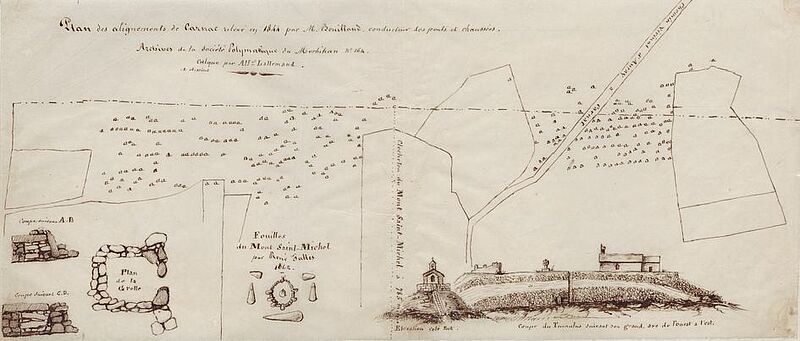 Plan des alignements de Carnac relevé en 1864 par M. Bouilland, conducteur des ponts et chaussées.
Archives de la Société Polymathique du Morbihan N° 164.
Calqué par Alf. Lallemand.
et dessiné
Chemin Vicinal d'Auray à Carnac
Clocheton du Mont Saint-Michel à 785
Coupe suivant A.B
Plan
de la
Grotte
Coupe suivant C.D.
Fouilles
du Mont Saint-Michel
par René Galles
1862.
Elévation côté Est.
Coupe du Tumulus suivant son grand axe de l'ouest à l'est.